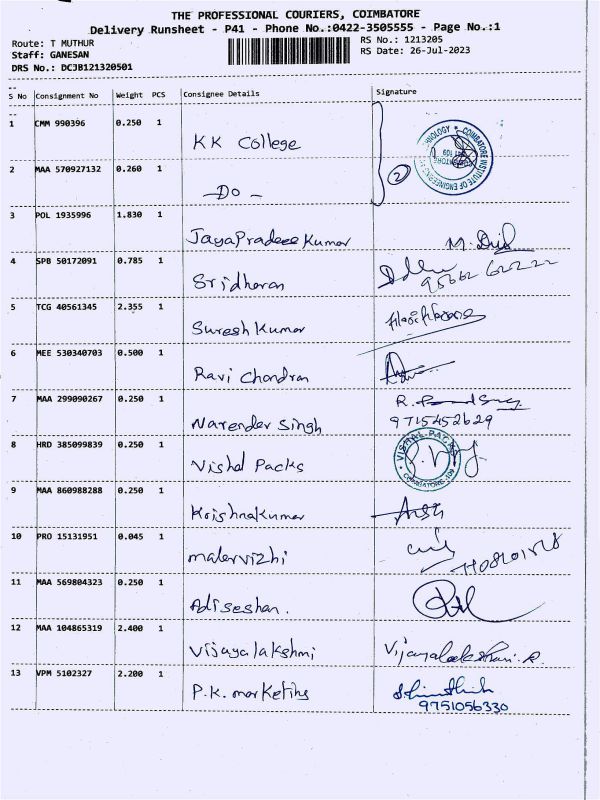 THE PROFESSIONAL COURIERS, COIMBATORE
Delivery Runsheet - P41 - Phone No.:0422-3505555 - Page No.:1
Route: T MUTHUR
RS No.: 1213205
Staff: GANESAN
RS Date: 26-Jul-2023
DRS No.: DCJB121320501
S No Consignment No Weight PCS Consignee Details Signature
1 CMM 990396 0.250 1 KK College
2 MAA 570927132 0.260 1 -Do- 2
3 POL 1935996 1.830 1 JayaPradeee Kumar
4 SPB 50172091 0.785 1 Sridharan
5 TCG 40561345 2.355 1 Suresh Kumar
6 MEE 530340703 0.500 1 Ravi Chandran
7 MAA 299090267 0.250 1 Narender Singh 9715452629
8 HRD 385099839 0.250 1 Vishal Packs
9 MAA 860988288 0.250 1 Krishnakumar
10 PRO 15131951 0.045 1 malarvizhi
11 MAA 569804323 0.250 1 Adiseshan.
12 MAA 104865319 2.400 1 Vijayalakshmi
13 VPM 5102327 2.200 1 P.K. marketing
9751056330